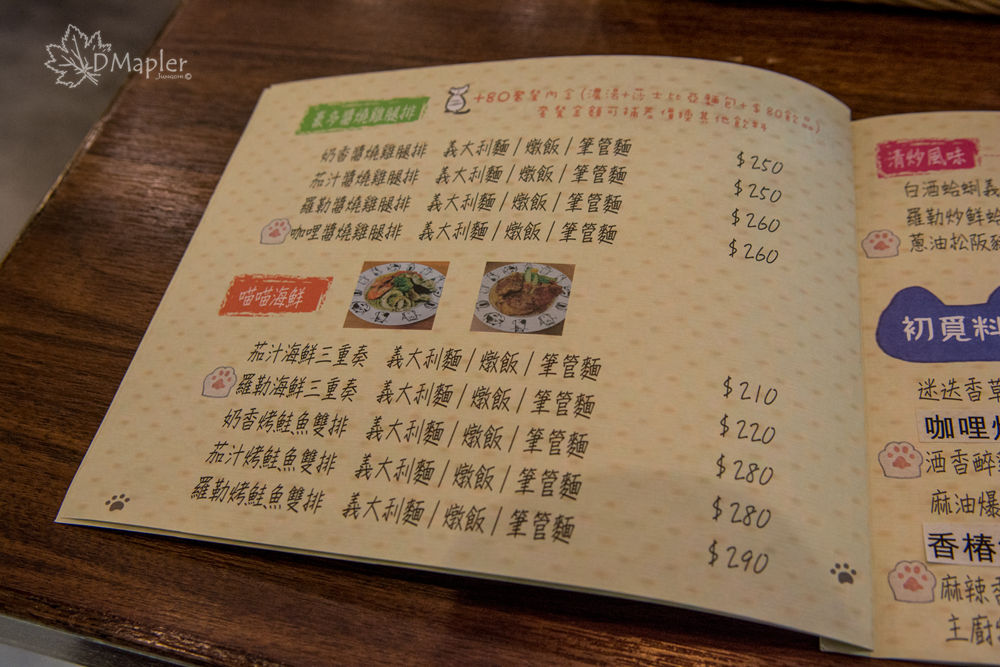 DMapler
Jungshi©
豪多醬燒雞腿排
+80套餐內含(濃湯+莎士比亞麵包+$80飲品)
套餐金額可補差價換其他飲料
奶香醬燒雞腿排 義大利麵/燉飯/筆管麵 $250
茄汁醬燒雞腿排 義大利麵/燉飯/筆管麵 $250
羅勒醬燒雞腿排 義大利麵/燉飯/筆管麵 $260
咖哩醬燒雞腿排 義大利麵/燉飯/筆管麵 $260
喵喵海鮮
茄汁海鮮三重奏 義大利麵/燉飯/筆管麵 $210
羅勒海鮮三重奏 義大利麵/燉飯/筆管麵 $220
奶香烤鮭魚雙排 義大利麵/燉飯/筆管麵 $280
茄汁烤鮭魚雙排 義大利麵/燉飯/筆管麵 $280
羅勒烤鮭魚雙排 義大利麵/燉飯/筆管麵 $290
清炒風味
白酒蛤蜊義
羅勒炒鮮蛤
蔥油松阪豬
初覓料
迷迭香草
咖哩
酒香醉
麻油爆
香椿
麻辣香
主廚